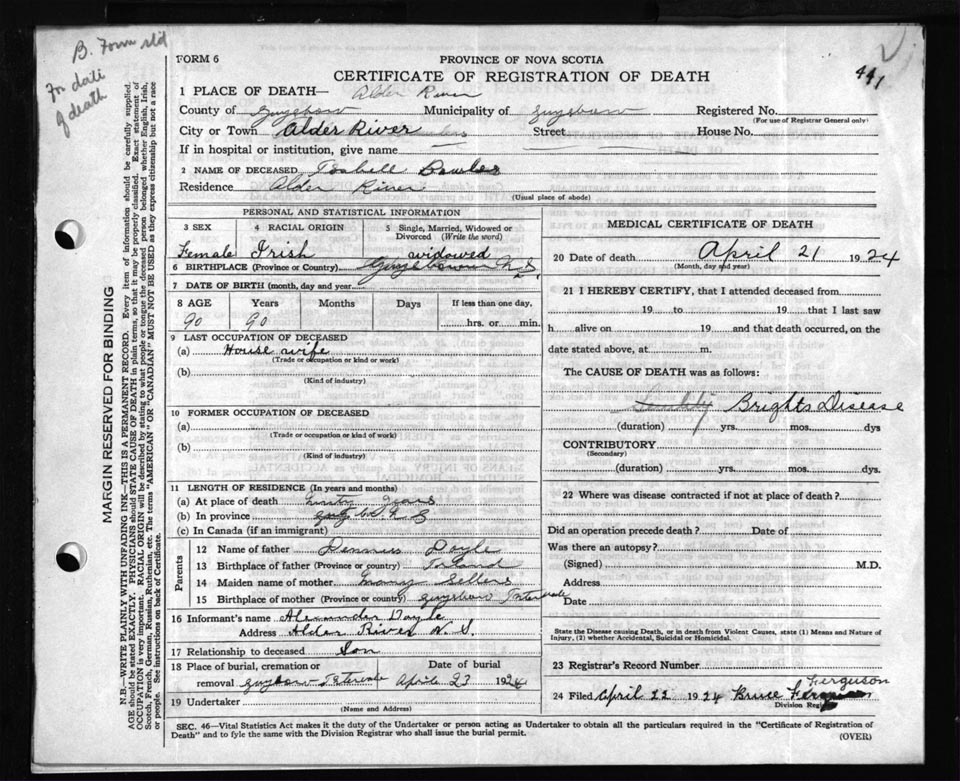 B. Form rld
for date
of death
441
FORM 6
PROVINCE OF NOVA SCOTIA
CERTIFICATE OF REGISTRATION OF DEATH
1 PLACE OF DEATH— Alder River
County of Guysboro Municipality of Guysboro Registered No.
(For use of Registrar General only)
City or Town Alder River Street House No.
If in hospital or institution, give name
2 NAME OF DECEASED Isabell Bowles
Residence Alder River
(Usual place of abode)
PERSONAL AND STATISTICAL INFORMATION
3 SEX 4 RACIAL ORIGIN 5 Single, Married, Widowed or Divorced (Write the word)
Female Irish widowed
6 BIRTHPLACE (Province or Country) N.S.
7 DATE OF BIRTH (month, day and year)
8 AGE Years Months Days If less than one day,
90 90 hrs. or min.
9 LAST OCCUPATION OF DECEASED
(a) House wife
(Trade or occupation or kind or work)
(b)
(Kind of industry)
10 FORMER OCCUPATION OF DECEASED
(a)
(Trade or occupation or kind of work)
(b)
(Kind of industry)
11 LENGTH OF RESIDENCE (In years and months)
(a) At place of death years
(b) In province
(c) In Canada (if an immigrant)
Parents
12 Name of father Dennis Doyle
13 Birthplace of father (Province or country)
14 Maiden name of mother Mary Sellers
15 Birthplace of mother (Province or country) Guysboro Intervale
16 Informant's name Alexander Doyle
Address Alder River N. S.
17 Relationship to deceased Son
18 Place of burial, cremation or Date of burial
removal Guysboro Intervale April 23 1924
19 Undertaker
(Name and Address)
MEDICAL CERTIFICATE OF DEATH
20 Date of death April 21 1924
(Month, day and year)
21 I HEREBY CERTIFY, that I attended deceased from
19 to 19 that I last saw
h alive on 19 and that death occurred, on the
date stated above, at m.
The CAUSE OF DEATH was as follows:
Brights Disease
(duration) yrs. mos. dys
CONTRIBUTORY
(Secondary)
(duration) yrs. mos. dys.
22 Where was disease contracted if not at place of death?
Did an operation precede death? Date of
Was there an autopsy?
(Signed) M.D.
Address
Date
State the Disease causing Death, or in death from Violent Causes, state (1) Means and Nature of
Injury, (2) whether Accidental, Suicidal or Homicidal.
23 Registrar's Record Number
Ferguson
24 Filed April 22 1924 Bruce
Division
SEC. 46—Vital Statistics Act makes it the duty of the Undertaker or person acting as Undertaker to obtain all the particulars required in the "Certificate of Registration of
Death" and to fyle the same with the Division Registrar who shall issue the burial permit.
(OVER)
MARGIN RESERVED FOR BINDING
N.B.—WRITE PLAINLY WITH UNFADING INK—THIS IS A PERMANENT RECORD. Every item of information should be carefully supplied.
AGE should be stated EXACTLY. PHYSICIANS should STATE CAUSE OF DEATH in plain terms, so that it may be properly classified. Exact statement of
OCCUPATION is very important. RACIAL ORIGIN will be described by stating to what people or tongue the deceased person belonged whether English, Irish,
Scotch, French, German, Russian, Ruthenian, etc. The terms "AMERICAN" OR "CANADIAN" MUST NOT BE USED as they express citizenship but not a race
or people. See instructions on back of Certificate.